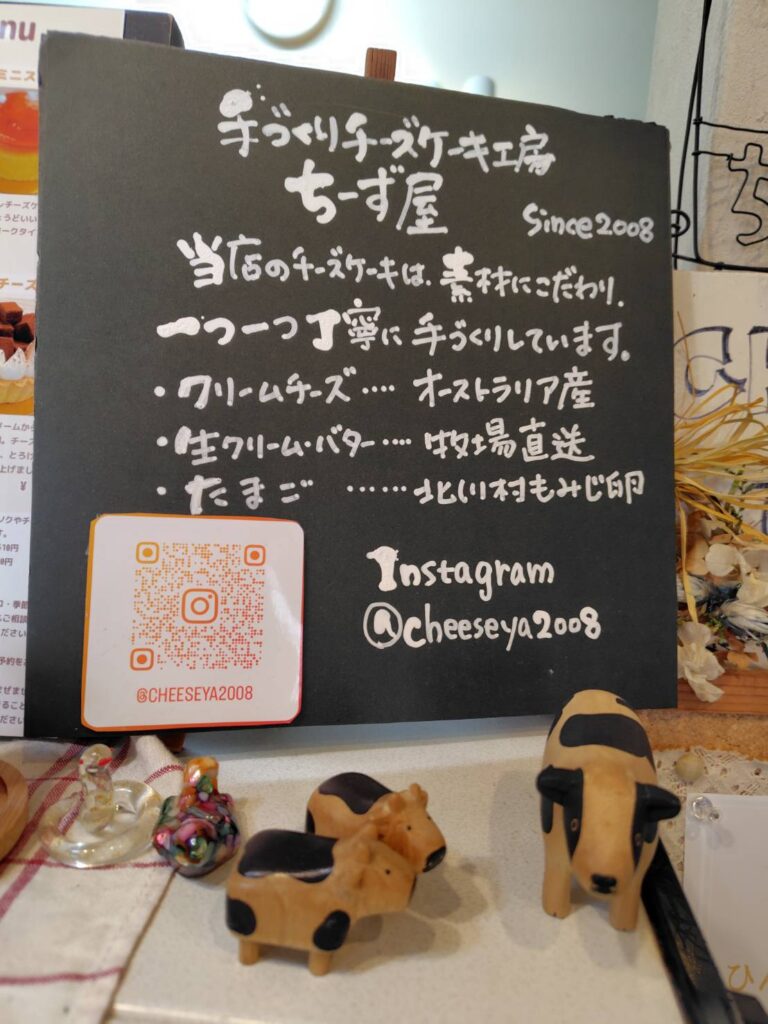 手づくりチーズケーキ工房
ちーず屋
Since2008
当店のチーズケーキは、素材にこだわり、
一つ一つ丁寧に手づくりしています。
・クリームチーズ‥‥オーストラリア産
・生クリーム・バター‥‥牧場直送
・たまご ‥‥‥北川村もみじ卵
Instagram
@cheeseya2008
@CHEESEYA2008
nu
ミニス
チーズ
¥